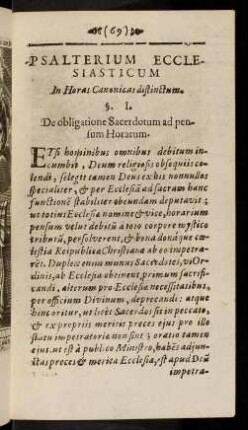 (69)
PSALTERIUM ECCLE-
SIASTICUM
In Horas Canonicas distinctum.
§. I.
De obligatione Sacerdotum ad pen-
sum Horarum.
ETsi hominibus omnibus debitum in-
cumbit, Deum religiosis obsequiis co-
lendi, selegit tamen Deus ex his nonnullos
specialiter, & per Ecclesiã ad sacram hanc
functionẽ stabiliter obeundam deputavit;
ut totius Ecclesiæ nomine & vice, horarium
pensum velut debitũ à toto corpore mystico
tributũ, persolverent, & bona dona quæ cœ-
lestia Reipublicæ Christianæ ab eo impetra-
rẽt. Duplex enim munus Sacerdotes, vi Or-
dinis, ab Ecclesia obtinent, primum sacrifi-
candi, alterum pro Ecclesiæ necessitatibus,
per officium Divinum, deprecandi: atque
hinc oritur, ut licèt Sacerdos sit in peccato,
& ex propriis meritis preces ejus pro illo
statu impetratoriæ non sint; oratio tamen
ejus, ut est à publico Ministro, habẽs adjun-
ctas preces & merita Ecclesiæ, est apud Deũ
impetra-